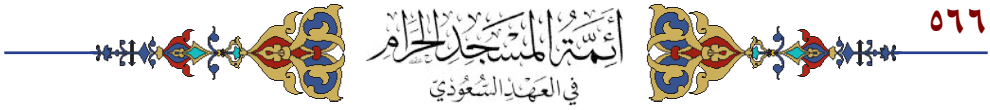 ٥٦٦
أئمة المسجد الحرام
في العهد السعودي